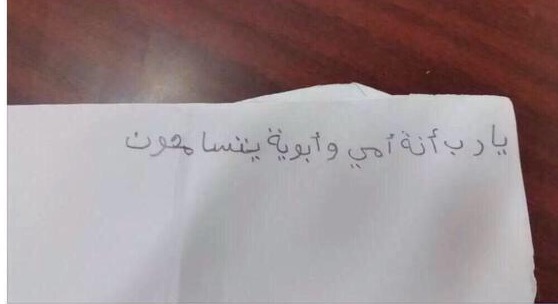 يارب أنة أمي وأبوية يتسامحون